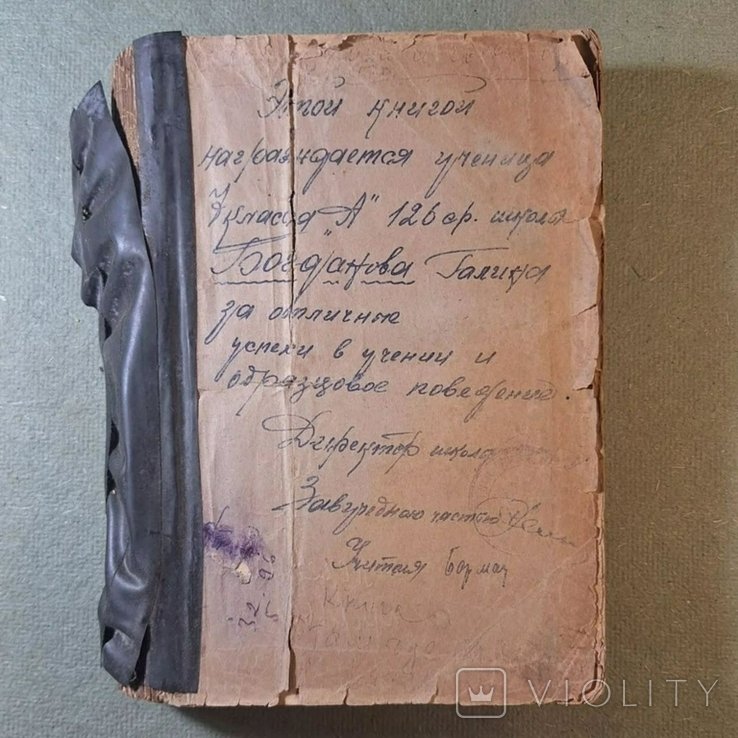 Этой книгой
награждается ученица
класса "А" 126 ср. школы
Богданова Галина
за отличные
успехи в учении и
образцовое поведение.
Директор школы
Зав. учебною частью
Учителя
Книга
VIOLITY